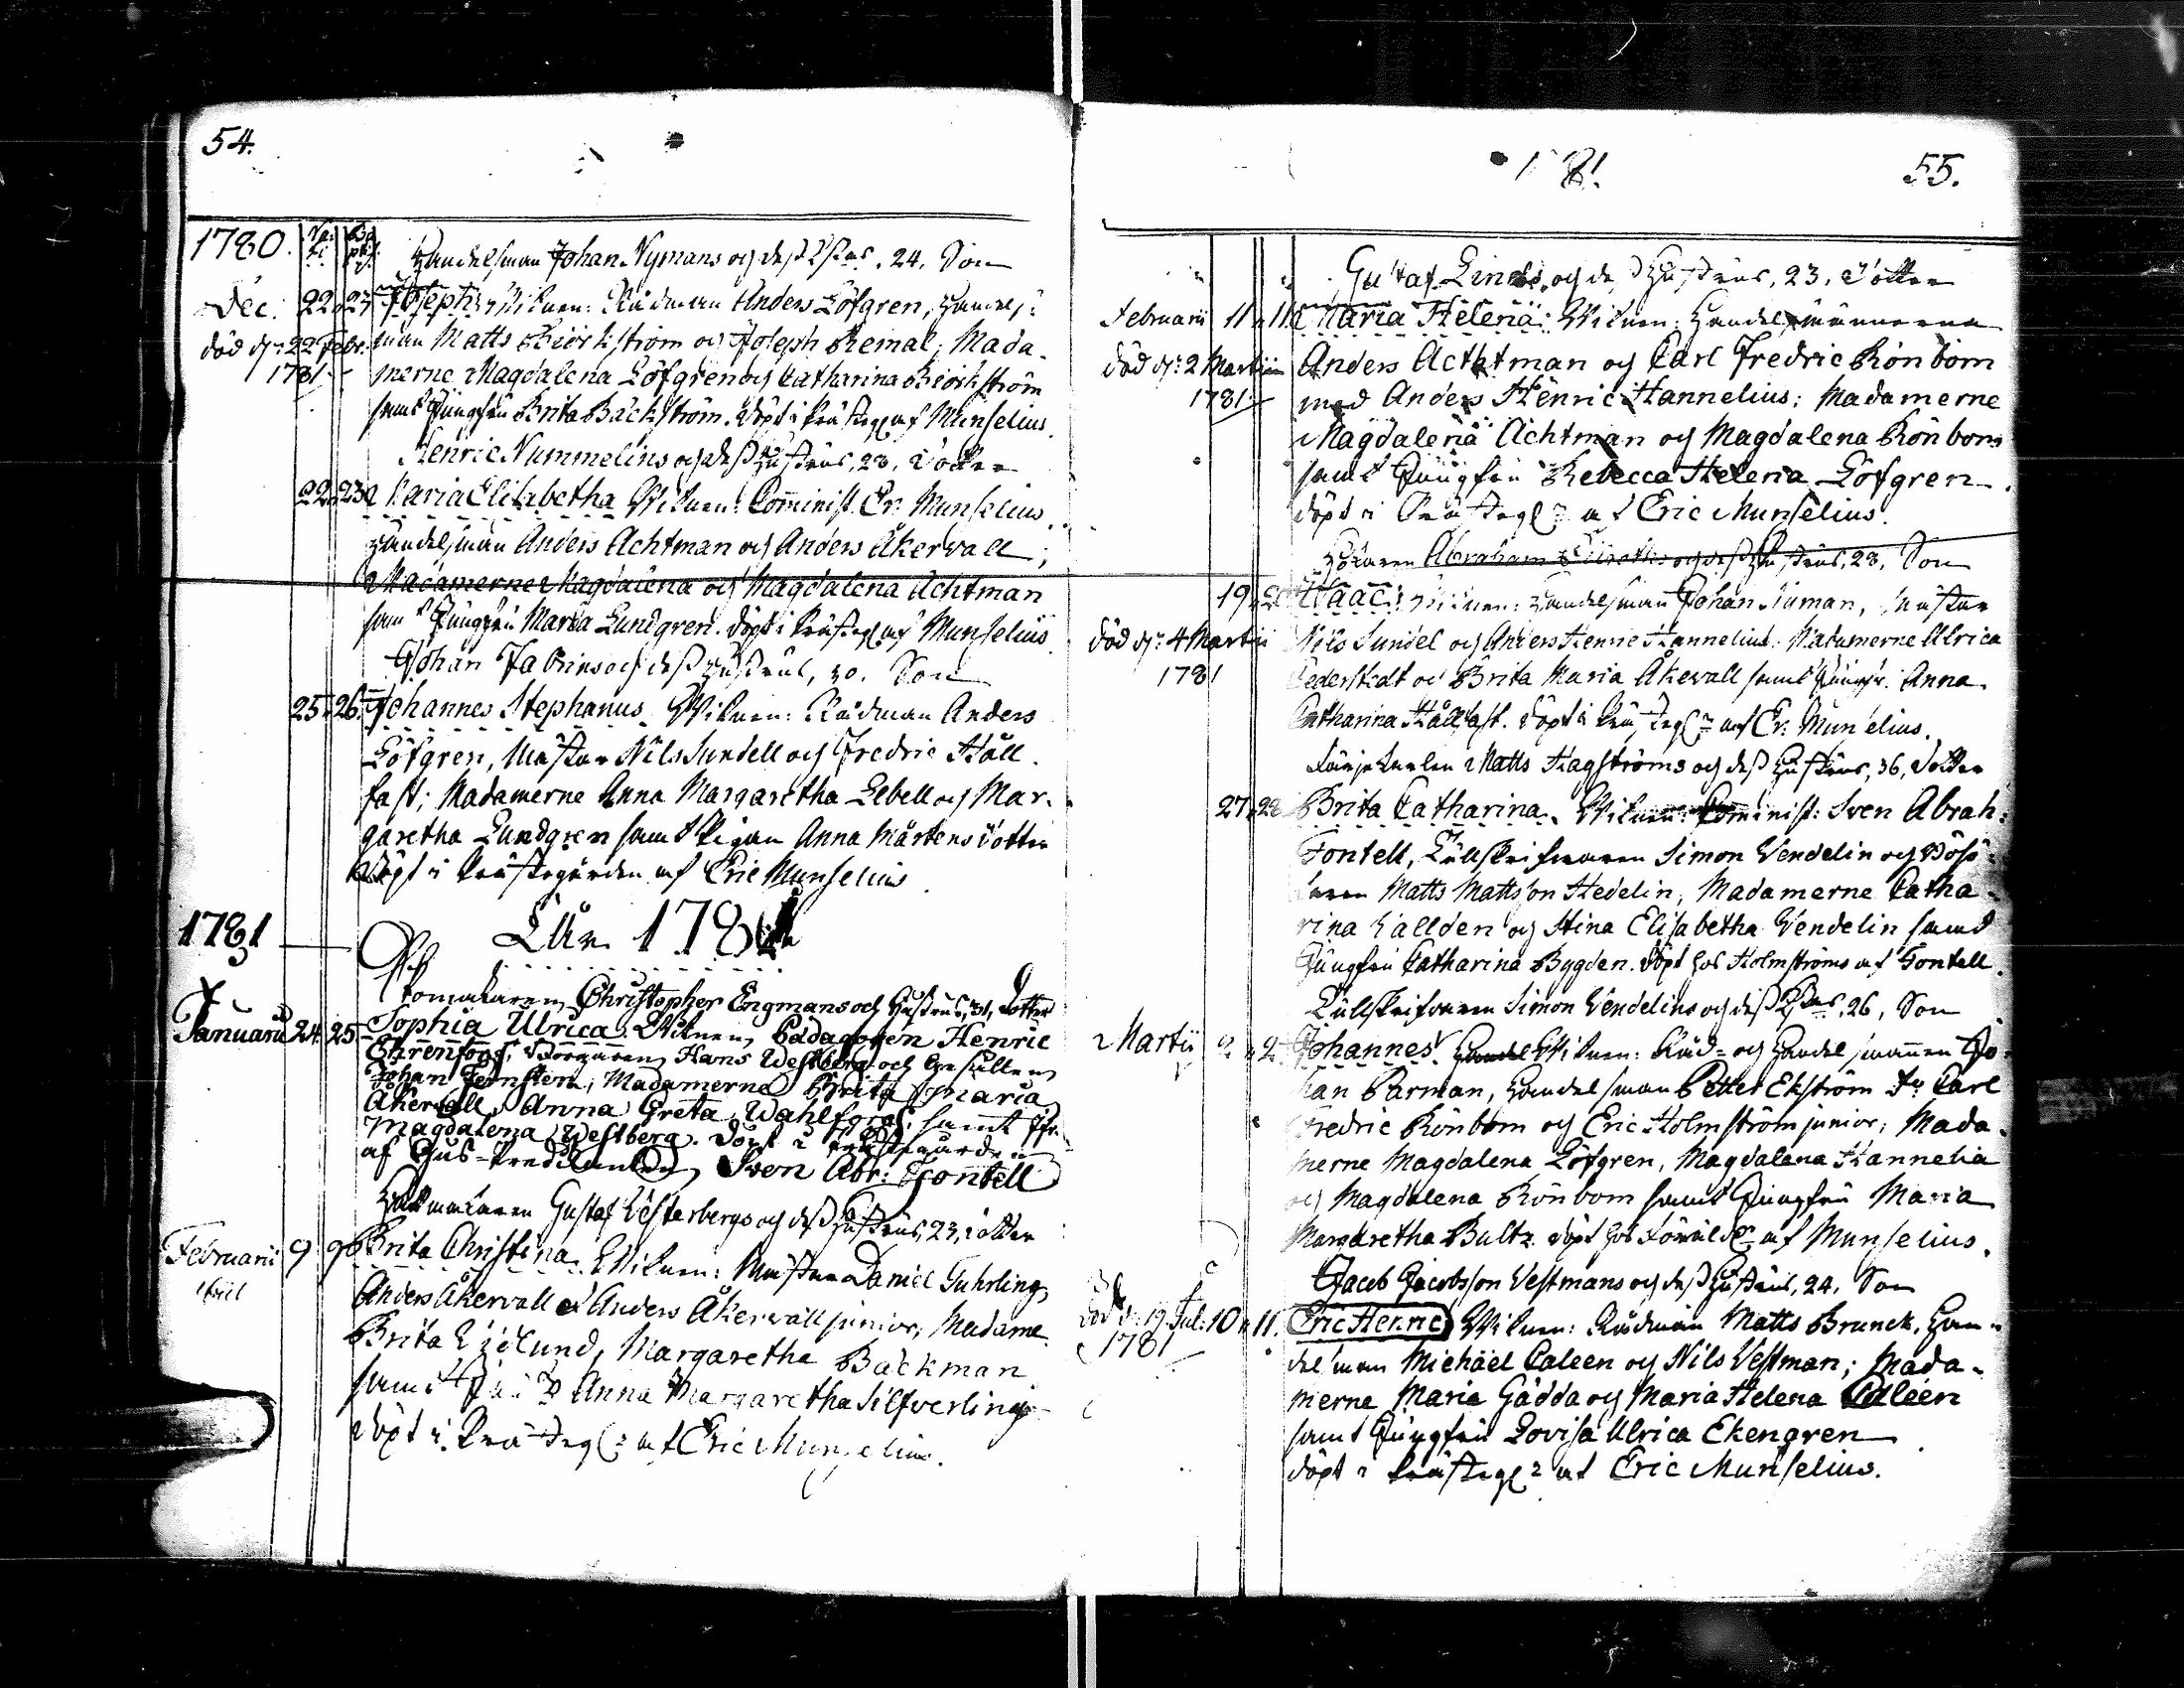 54.
1780. Nati Bapt. Handelsman Johan Nymans och dess H:us, 24, Son
Dec. 22. 23. Joseph. Witnen: Rådman Anders Löfgren, Handels-
död d: 22 Febr. man Matts Biörkström och Joseph Reinal; Mada-
1781. merne Magdalena Löfgren och Catharina Biörkström
samt Jungfru Brita Bäckström. döpt i Prästeg. af Munselius.
Henric Nummelins och dess Hustrus, 28, Dotter
22. 23. Maria Elisabetha Witnen: Com̄inist. Er. Munselius
Handelsman Anders Achtman och Anders Åkervall;
Madamerne Magdalena och Magdalena Achtman
samt Jungfru Maria Lundgren. döpt i Prästeg. af Munselius.
Johan Fabrins och dess Hustrus, 30. Son
25. 26. Johannes Stephanus. Witnen: Rådman Anders
Löfgren, Mästar Nils Sundell och Fredric Häll-
fast; Madamerne Anna Margaretha Lebell och Mar-
garetha Lundgren samt Pigan Anna Mårtens dotter
döpt i Prästegården af Eric Munselius.
1781 Åhr 1781
tomakaren Christopher Engmans och Hustrus, 31, Dotter
Januarii 24. 25 Sophia Ulrica. Witnen, Pædagogen Henric
Ehrenfors, Borgaren Hans Westberg och Gesällen
Johan Fernsten; Madamerne Brita Maria
Åkervall, Anna Greta Wahlfors; samt Jfr.
Magdalena Westberg. döpt i Prästegården
af Hus-Predikanten Sven Abr: Fontell
Hattmakaren Gustaf Vesterbergs och dess Hustrus, 23, dotter
Februarii 9. 9. Brita Christina. Witnen: Mästar Daniel Guhrling,
Anders Åkervall & Anders Åkervall junior; Madame
Brita Lidlund, Margaretha Backman
samt Anna Margaretha Silfverling
döpt i Prästeg. af Eric Munselius.
1781. 55.
Gustaf Linds, och dess Hustrus, 23, dotter
Februarii 11. 11. Maria Helena. Witnen: Handelsmännerna
död d: 2 Martii Anders Achtman och Carl Fredric Rönbom
1781 med Anders Henric Hannelius; Madamerne
Magdalena Achtman och Magdalena Rönbom
samt Jungfru Rebecca Helena Löfgren.
döpt i Prästeg. af Eric Munselius.
Abraham och dess Hustrus, 28, Son
19. 20. Isaac. Witnen: Handelsman Johan Niman, Mästar
död d: 4 Martii Nils Sundel och Anders Henric Hannelius. Madamerne Ulrica
1781 Cederstedt och Brita Maria Åkervall samt Jungfr. Anna
Catharina Hällfast. döpt i Prästeg. af Er. Munselius.
Matts Hagströms och dess Hustrus, 36, Dotter
27. 28 Brita Catharina. Witnen: Com̄inist: Sven Abrah:
Fontell, Tullskrifvaren Simon Vendelin och
Matts Mattsson Hedelin, Madamerne Catha-
rina Källden och Stina Elisabetha Vendelin samt
Jungfru Catharina Bygden. döpt hos Holmströms af Fontell.
Tullskrifvaren Simon Vendelins och dess H:us, 26, Son
Martii 2. 2. Johannes. Witnen: Råd- och Handelsmannen Jo-
han Parman, Handelsman Petter Ekström Dr Carl
Fredric Rönbom och Eric Holmström junior; Mada-
merne Magdalena Löfgren, Magdalena Hannelia
och Magdalena Rönbom samt Jungfru Maria
Margaretha Bultz. döpt hos Föräld. af Munselius.
Jacob Jacobsson Vestmans och dess Hustrus, 24. Son
död d: 19 Jul. 10. 11. Eric Henric Witnen: Rådman Matts Brunck, Han-
1781 delsman Michaël Caleen och Nils Vestman; Mada-
merne Maria Gädda och Maria Helena Caleen
samt Jungfru Lovisa Ulrica Ekengren
döpt i Prästeg. af Eric Munselius.